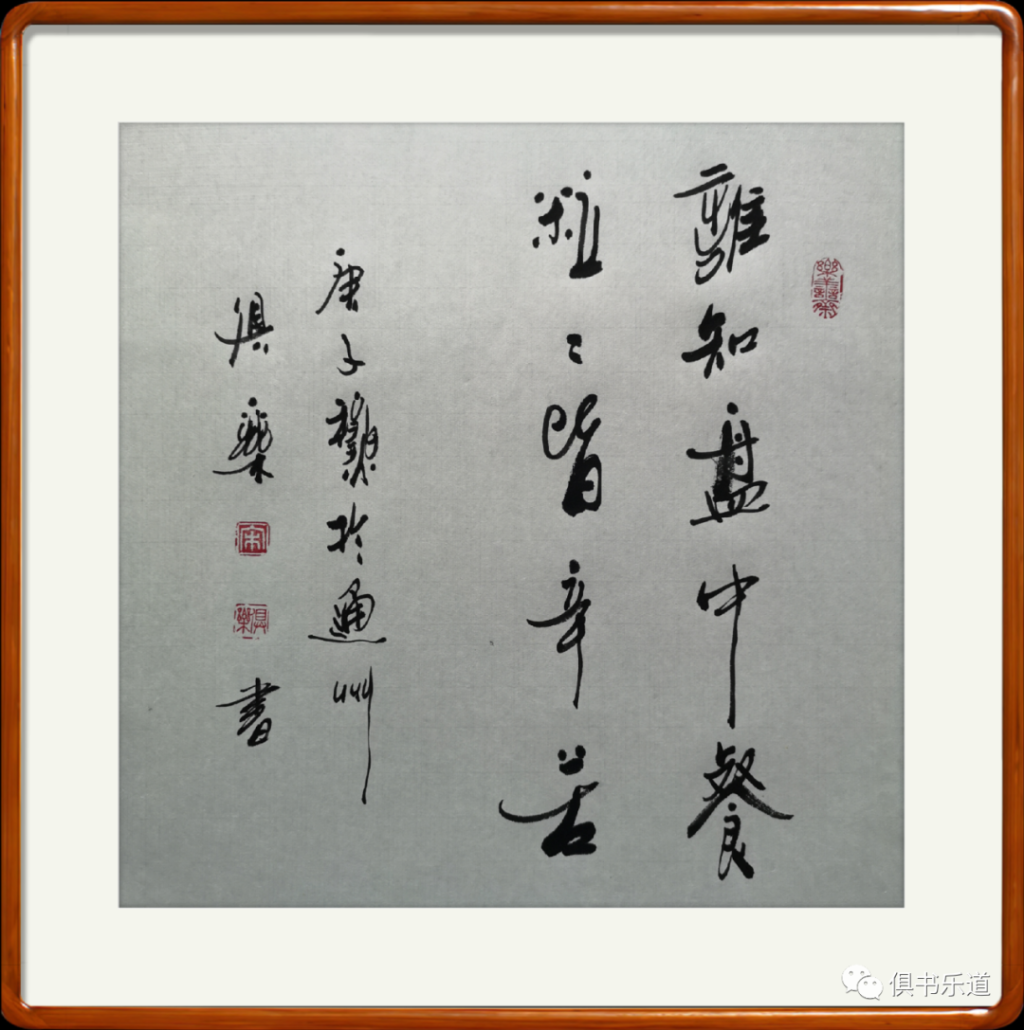 誰知盘中餐
粒〻皆辛苦
庚子於通州
俱樂 宋 俱樂 書
俱书乐道